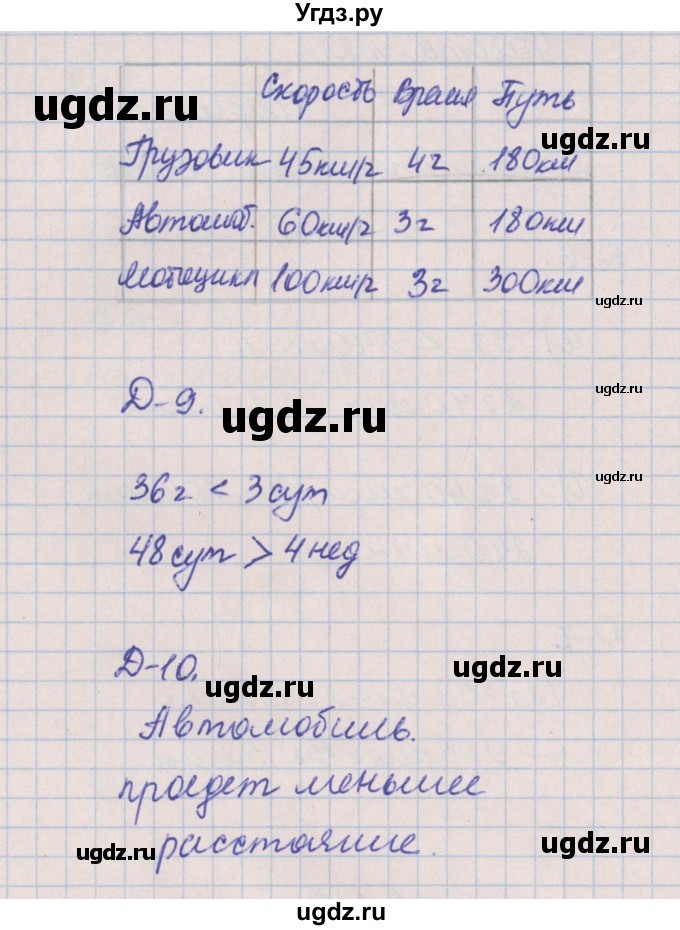 Угдз.ру
Скорость Время Путь
ugdz.ru
ugdz.ru
Грузовик 45км/г 4г 180км
Автомоб. 60км/г 3г 180км
Мотоцикл 100км/г 3г 300км
ugdz.ru
Д-9.
ugdz.ru
ugdz.ru
ugdz.ru
36г < 3сут
48сут > 4нед
Д-10.
ugdz.ru
ugdz.ru
Автомобиль.
проедет меньшее
расстояние.
ugdz.ru
ugdz.ru
ugdz.ru